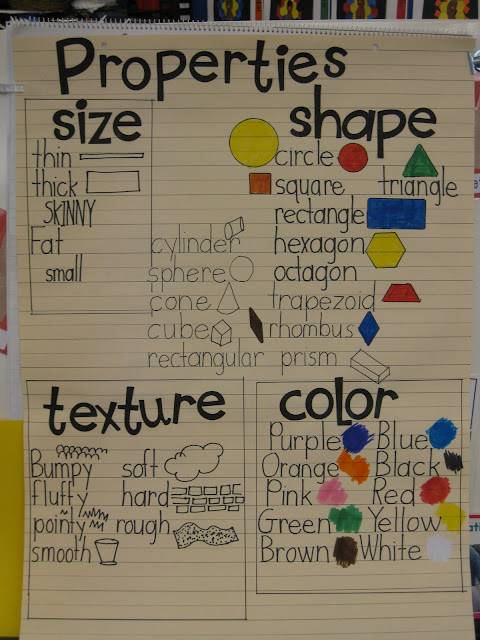 Properties
size
thin
thick
SKINNY
Fat
small
shape
circle
square triangle
rectangle
hexagon
octagon
trapezoid
rhombus
cylinder
sphere
cone
cube
rectangular prism
texture
Bumpy soft
fluffy hard
pointy rough
smooth
color
Purple Blue
Orange Black
Pink Red
Green Yellow
Brown White